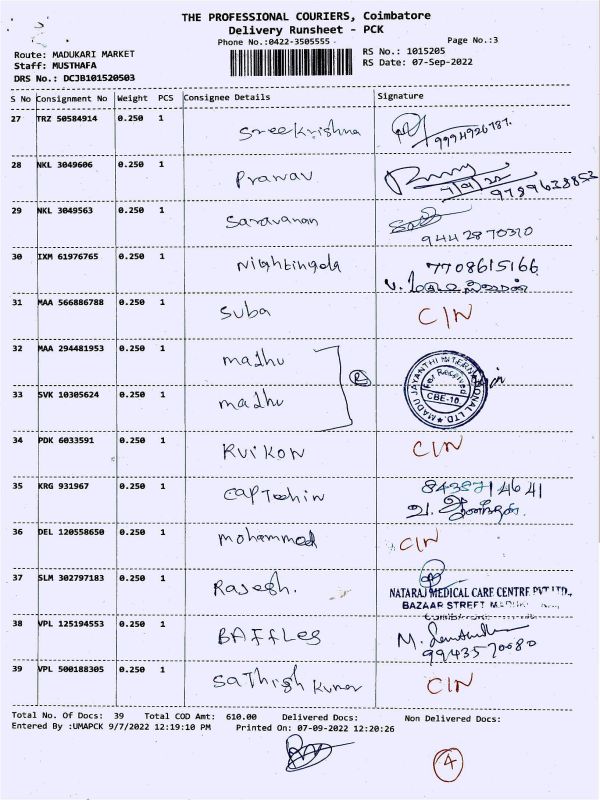 THE PROFESSIONAL COURIERS, Coimbatore
Delivery Runsheet - PCK
Phone No.:0422-3505555
Page No.:3
Route: MADUKARI MARKET
RS No.: 1015205
Staff: MUSTHAFA
RS Date: 07-Sep-2022
DRS No.: DCJB101520503
S No Consignment No Weight PCS Consignee Details Signature
27 TRZ 50584914 0.250 1 Sreekrishna 9994926787.
28 NKL 3049606 0.250 1 Pranav 7/9/22 9799638853
29 NKL 3049563 0.250 1 Saravanan 9442870310
30 IXM 61976765 0.250 1 Nightingola 7708615166
31 MAA 566886788 0.250 1 Suba C/N
32 MAA 294481953 0.250 1 madhu R MADU JAYANTHI INTERNATIONAL LTD. For Received CBE-10
33 SVK 10305624 0.250 1 madhu
34 PDK 6033591 0.250 1 KviKON C/N
35 KRG 931967 0.250 1 CapTechin
36 DEL 120558650 0.250 1 mohammed C/N
37 SLM 302797183 0.250 1 Rajesh. NATARAJ MEDICAL CARE CENTRE PVT LTD.,
BAZAAR STREET
38 VPL 125194553 0.250 1 BAFFLES M. 9943570080
39 VPL 500188305 0.250 1 Sathish Kumar C/N
Total No. Of Docs: 39 Total COD Amt: 610.00 Delivered Docs: Non Delivered Docs:
Entered By :UMAPCK 9/7/2022 12:19:10 PM Printed On: 07-09-2022 12:20:26
4